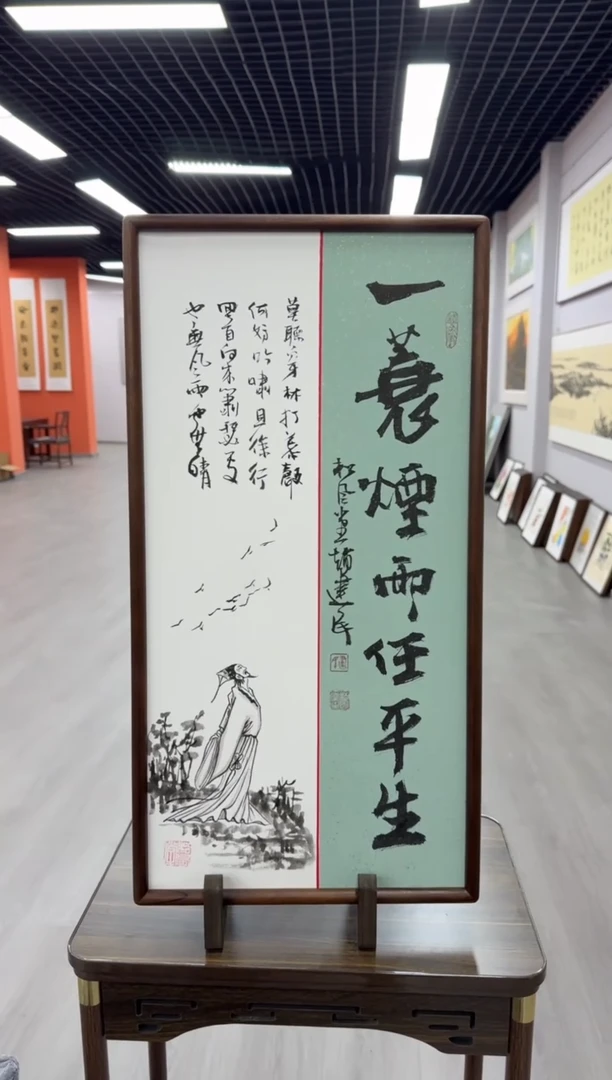 一蓑煙雨任平生
松风堂趙建民
莫聽穿林打葉聲
何妨吟嘯且徐行
回首向来蕭瑟處
也無风雨也無晴